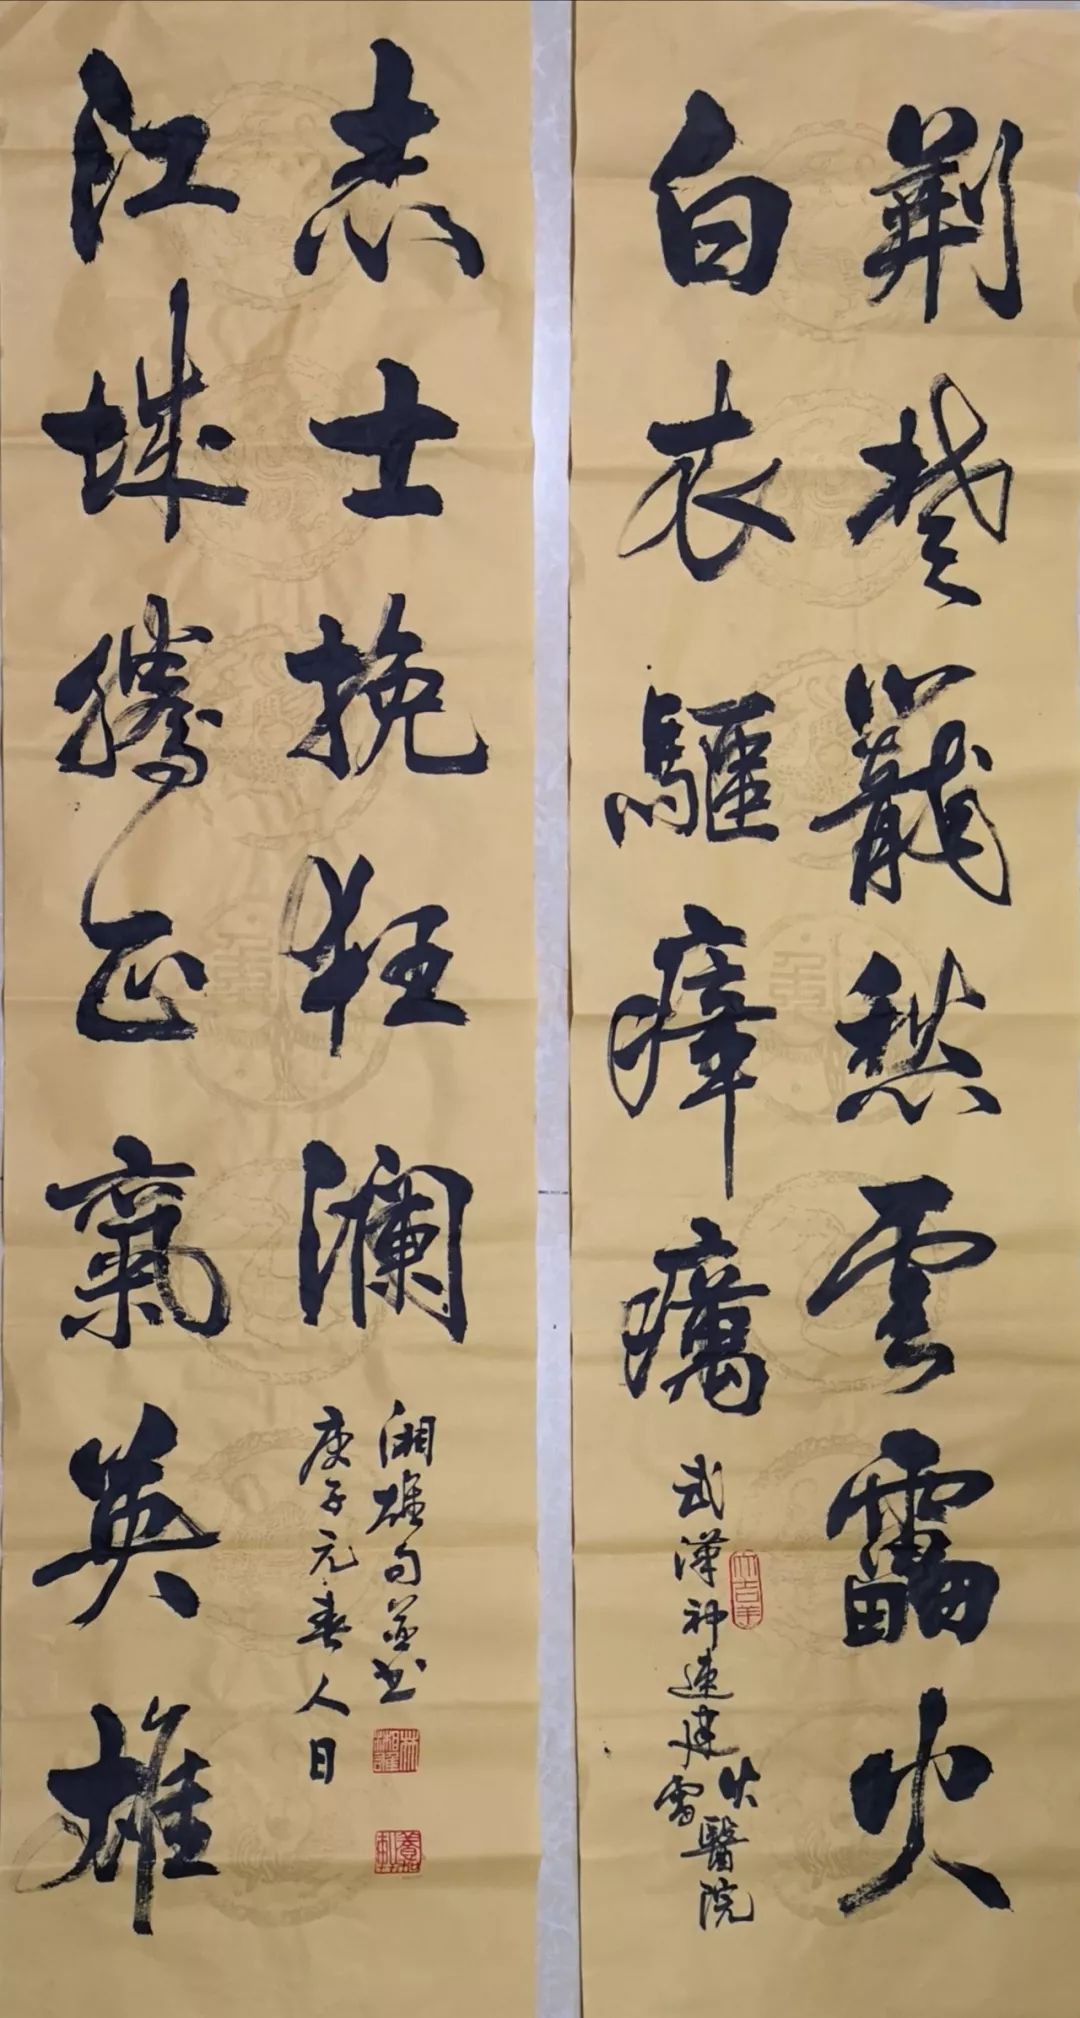 荆楚籠愁雲靁火
白衣驅瘴癘
武漢神速建雷火醫院
大吉羊
江城騰正氣英雄
志士挽狂瀾
庚子元春人日
湘雄句並書